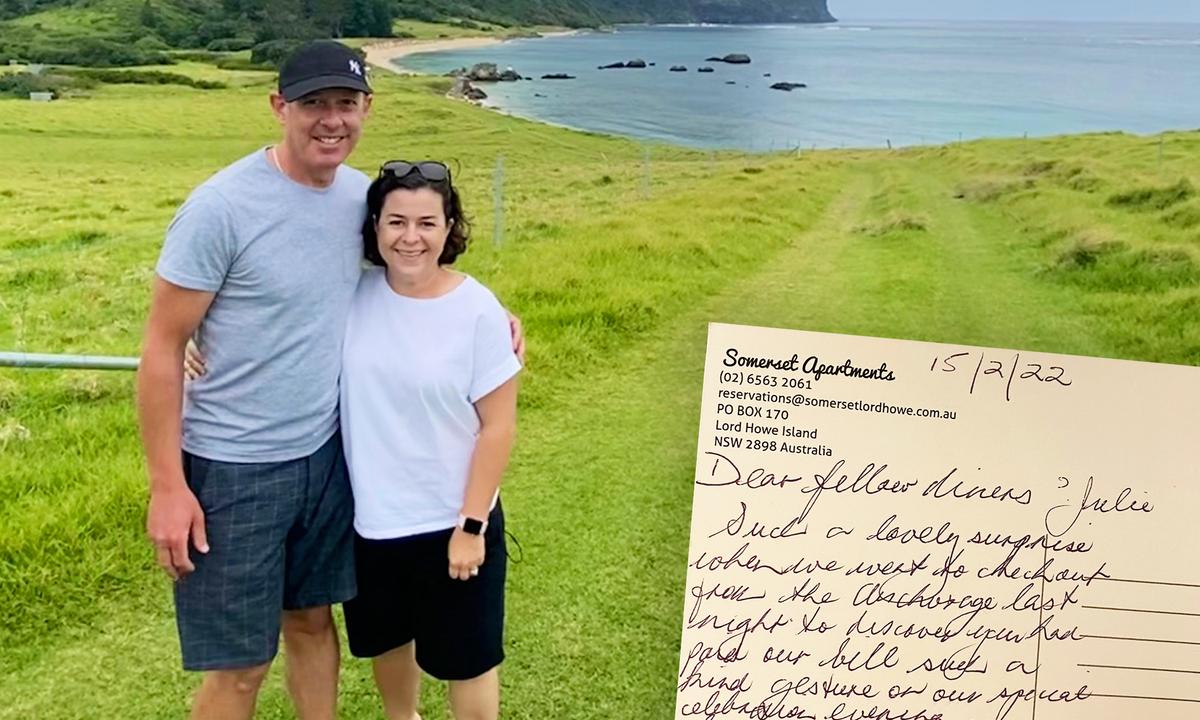 Somerset Apartments 15/2/22
(02) 6563 2061
reservations@somersetlordhowe.com.au
PO BOX 170
Lord Howe Island
NSW 2898 Australia
Dear fellow diners ? Julie
Such a lovely surprise
when we went to checkout
from the Anchorage last
night to discover you had
paid our bill such a
kind gesture on our special
celebration evening